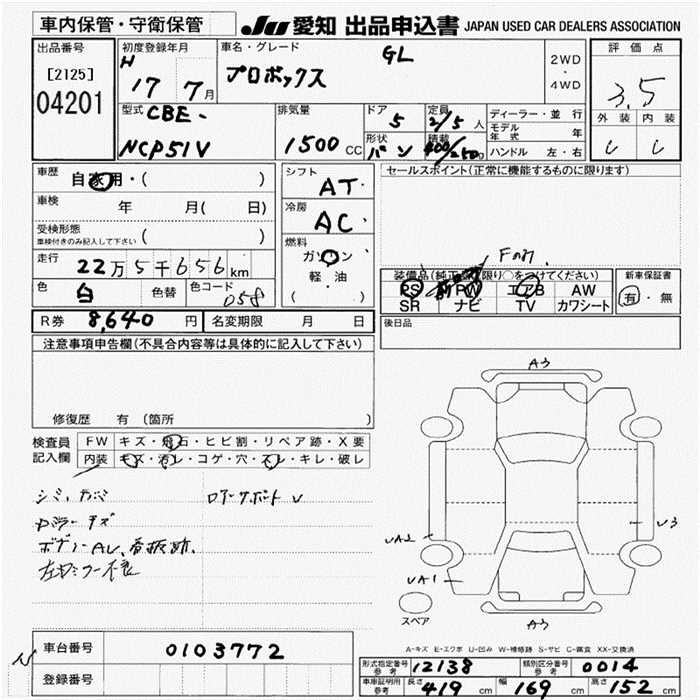 車内保管・守衛保管
JU 愛知 出品申込書 JAPAN USED CAR DEALERS ASSOCIATION
出品番号
[2125]
04201
初度登録年月
H 17 7月
車名・グレード
GL
プロボックス
2WD
・
4WD
評価点
3.5
外装 内装
型式 CBE-
NCP51V
排気量
1500 CC
ドア
5
形状
バン
定員
2/5人
積載
400/250
ディーラー・並行
モデル年式 年
ハンドル 左・右
車歴 自家用・( )
車検 年 月( 日)
受検形態
車検付きのみ記入して下さい ( )
走行 22万5千656km
色 白 色替 色コード 058
シフト
AT
冷房
AC
燃料
ガソリン
軽・油
( )
セールスポイント(正常に機能するものに限ります)
Fのみ
装備品(純正品に限り○をつけてください)
PS PW エアB AW
SR ナビ TV カワシート
新車保証書
有・無
後日品
R券 8,640 円 名変期限 月 日
注意事項申告欄(不具合内容等は具体的に記入して下さい)
修復歴 有 (箇所 )
検査員記入欄
FW キズ・飛石・ヒビ割・リペア跡・X要
内装 キズ・汚レ・コゲ・穴・スレ・キレ・破レ
ボデーAU、看板跡
A3
UA2
U3
UA1
A3
スペア
A-キズ E-エクボ U-凹み W-補修跡 S-サビ C-腐食 XX-交換済
車台番号 0103772
登録番号
形式指定番号 参考 12138 類別区分番号 参考 0014
車庫証明用 参考 長さ 419 cm 幅 169 cm 高さ 152 cm